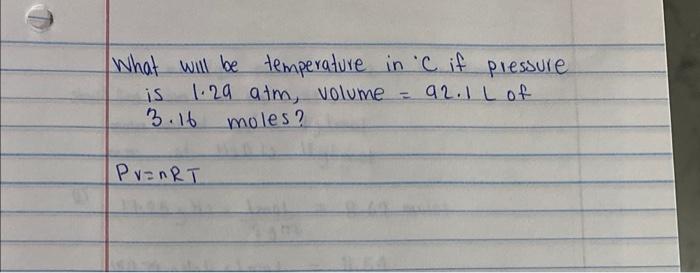 What will be temperature in °C if pressure
is 1.29 atm, volume = 92.1 L of
3.16 moles?
PV=nRT